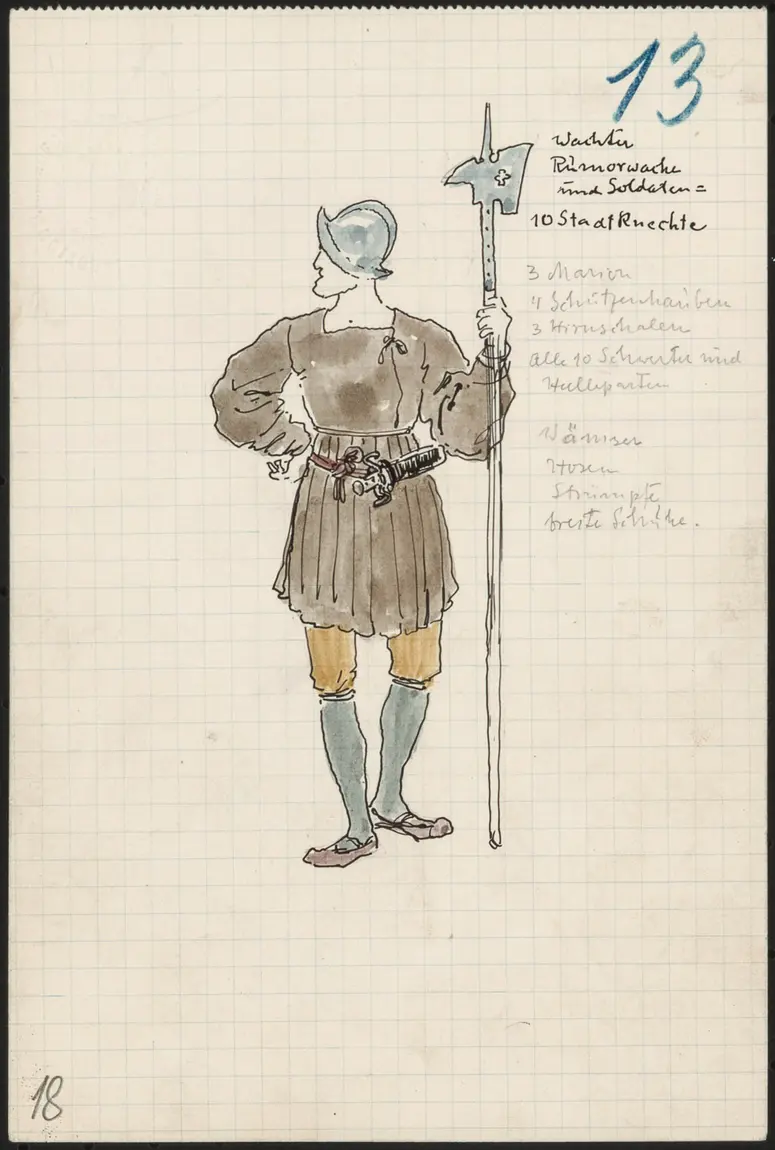 13
Wächter
Rumorwache
und Soldaten =
10 Stadtknechte
3 Marion
4 Schützenhauben
3 Hirnschalen
alle 10 Schwerter und
Helleparten
Wämser
Hosen
Strümpfe
breite Schuhe.
18